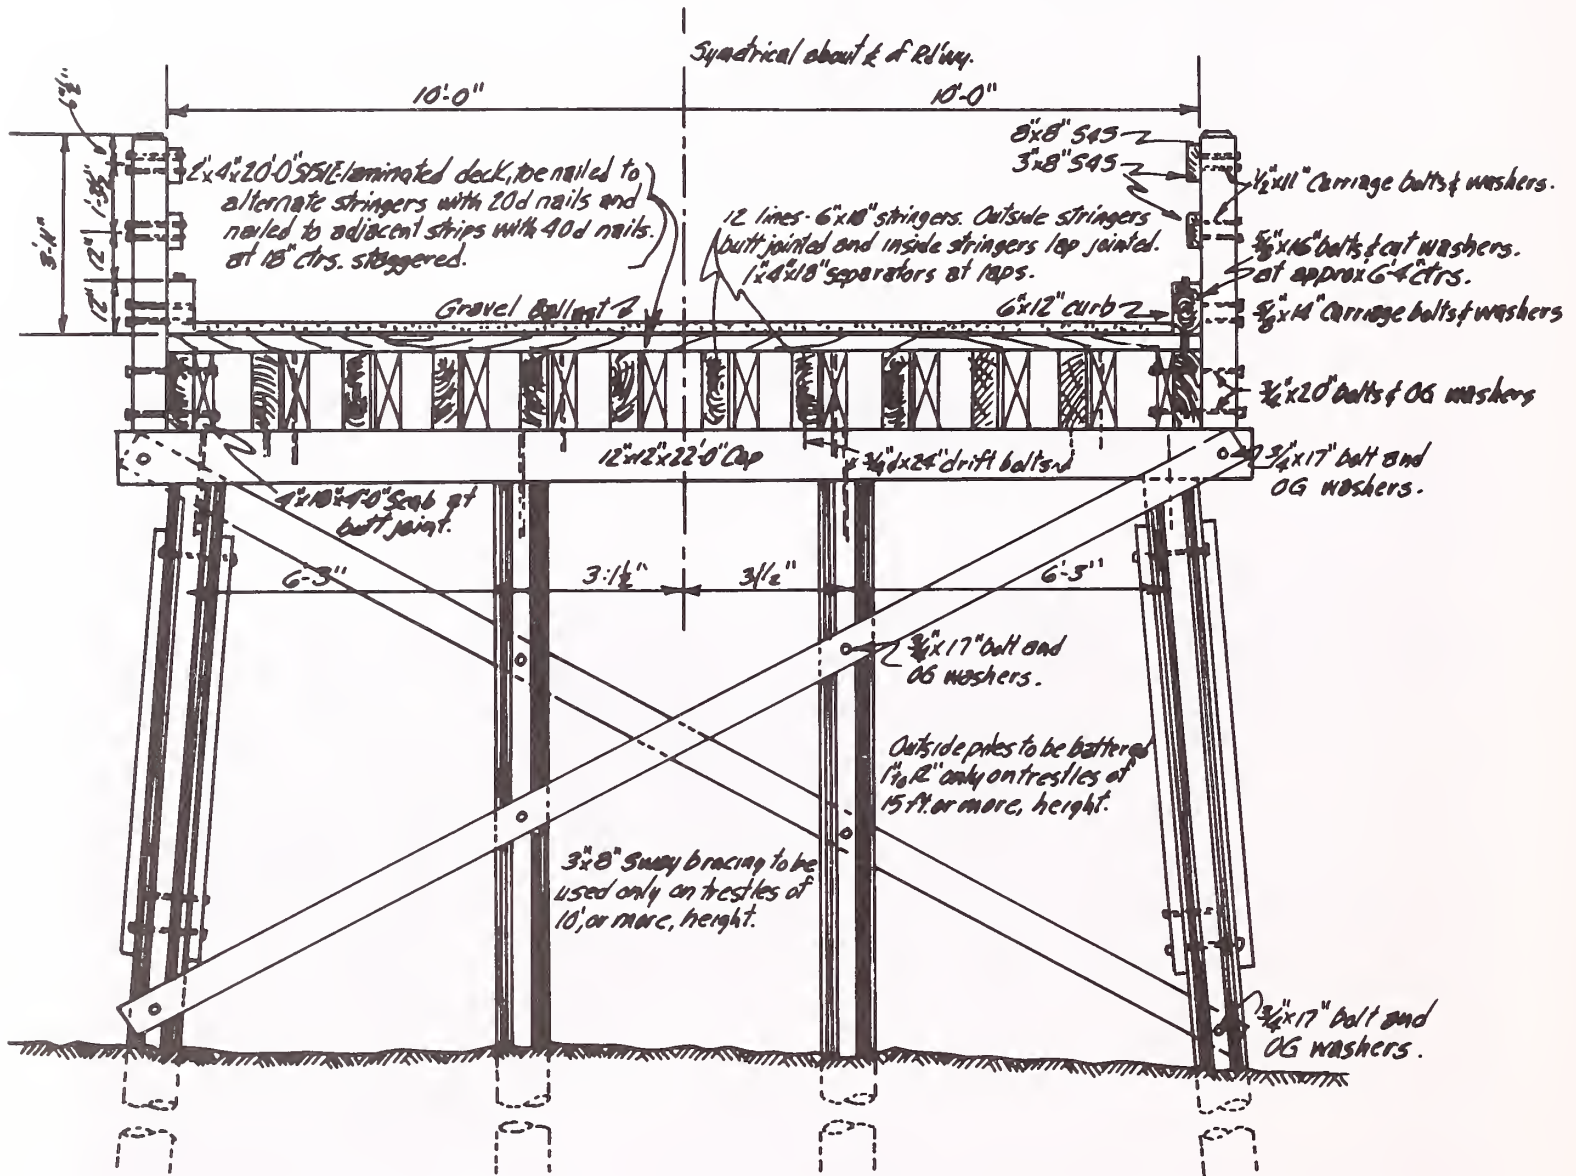 Symetrical about ℄ of Rd'wy.
10'-0"
10'-0"
6½"
3'-11"
12"
12"
2"x4"x20'-0" S1S1E laminated deck, toe nailed to
alternate stringers with 20d nails and
nailed to adjacent strips with 40d nails.
at 18" ctrs. staggered.
12 lines - 6"x18" stringers. Outside stringers
butt jointed and inside stringers lap jointed.
1"x4"x18" separators at laps.
8"x8" S4S
3"x8" S4S
½"x11" Carriage bolts & washers.
⅝"x16" bolts & cut washers.
at approx 6'-4" ctrs.
6"x12" curb
⅝"x14" Carriage bolts & washers
Gravel Ballast
¾"x20" bolts & OG washers
12"x12"x22'-0" Cap
¾"x24" drift bolts
¾"x17" bolt and
OG washers.
4"x18"x4'-0" Scab at
butt joint.
6'-3"
3'-1½"
3'1½"
6'-3"
¾"x17" bolt and
OG washers.
Outside piles to be battered
1" to 12" only on trestles of
15 ft. or more, height.
3"x8" Sway bracing to be
used only on trestles of
10', or more, height.
¾"x17" bolt and
OG washers.